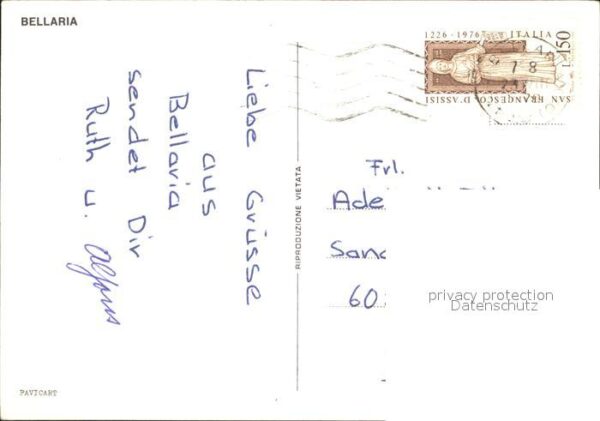 BELLARIA
1226-1976 ITALIA
150
SAN FRANCESCO D'ASSISI
7 8
Liebe Grüsse
aus
Bellaria
sendet Dir
Ruth u. Alfons
RIPRODUZIONE VIETATA
Frl.
Ade
Sand
60
privacy protection
Datenschutz
PAVICART